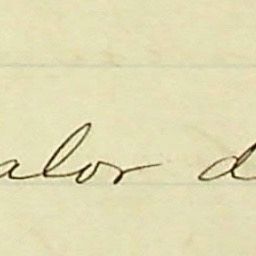 alor d